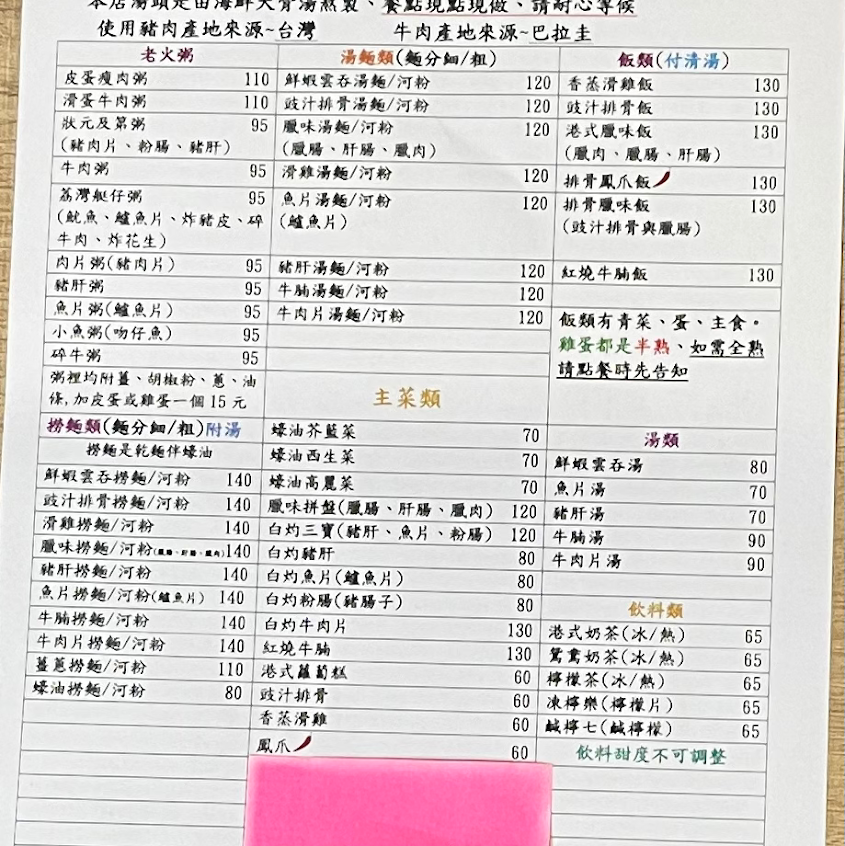 本店湯頭是由海鮮大骨湯熬製、餐點現點現做、請耐心等候
使用豬肉產地來源~台灣 牛肉產地來源~巴拉圭
老火粥
皮蛋瘦肉粥 110
滑蛋牛肉粥 110
狀元及第粥 95
(豬肉片、粉腸、豬肝)
牛肉粥 95
荔灣艇仔粥 95
(魷魚、鱸魚片、炸豬皮、碎
牛肉、炸花生)
肉片粥(豬肉片) 95
豬肝粥 95
魚片粥(鱸魚片) 95
小魚粥(吻仔魚) 95
碎牛粥 95
粥裡均附薑、胡椒粉、蔥、油
條,加皮蛋或雞蛋一個15元
撈麵類(麵分細/粗)附湯
撈麵是乾麵伴蠔油
鮮蝦雲吞撈麵/河粉 140
豉汁排骨撈麵/河粉 140
滑雞撈麵/河粉 140
臘味撈麵/河粉(臘腸、肝腸、臘肉) 140
豬肝撈麵/河粉 140
魚片撈麵/河粉(鱸魚片) 140
牛腩撈麵/河粉 140
牛肉片撈麵/河粉 140
薑蔥撈麵/河粉 110
蠔油撈麵/河粉 80
湯麵類(麵分細/粗)
鮮蝦雲吞湯麵/河粉 120
豉汁排骨湯麵/河粉 120
臘味湯麵/河粉 120
(臘腸、肝腸、臘肉)
滑雞湯麵/河粉 120
魚片湯麵/河粉 120
(鱸魚片)
豬肝湯麵/河粉 120
牛腩湯麵/河粉 120
牛肉片湯麵/河粉 120
主菜類
蠔油芥藍菜 70
蠔油西生菜 70
蠔油高麗菜 70
臘味拼盤(臘腸、肝腸、臘肉) 120
白灼三寶(豬肝、魚片、粉腸) 120
白灼豬肝 80
白灼魚片(鱸魚片) 80
白灼粉腸(豬腸子) 80
白灼牛肉片 130
紅燒牛腩 130
港式蘿蔔糕 60
豉汁排骨 60
香蒸滑雞 60
鳳爪 60
飯類(付清湯)
香蒸滑雞飯 130
豉汁排骨飯 130
港式臘味飯 130
(臘肉、臘腸、肝腸)
排骨鳳爪飯 130
排骨臘味飯 130
(豉汁排骨與臘腸)
紅燒牛腩飯 130
飯類有青菜、蛋、主食。
雞蛋都是半熟、如需全熟
請點餐時先告知
湯類
鮮蝦雲吞湯 80
魚片湯 70
豬肝湯 70
牛腩湯 90
牛肉片湯 90
飲料類
港式奶茶(冰/熱) 65
鴛鴦奶茶(冰/熱) 65
檸檬茶(冰/熱) 65
凍檸樂(檸檬片) 65
鹹檸七(鹹檸檬) 65
飲料甜度不可調整